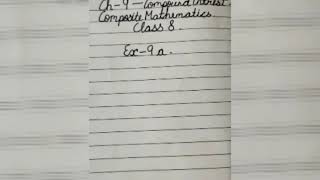 Ch-9 - Compound Interest.
Composite Mathematics.
Class 8.
Ex-9a.